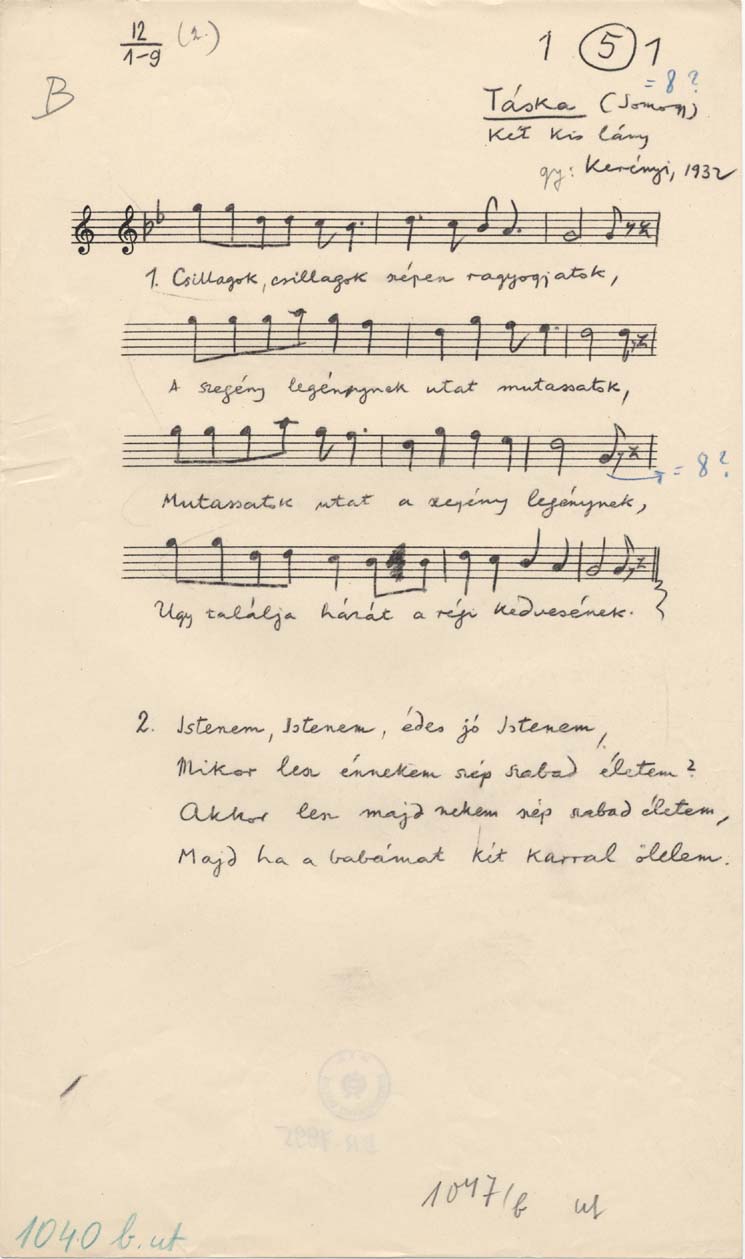 12 (2.)
1-9
1 5 1
= 8 ?
B
Táska (Somogy)
Két kis lány
gy: Kerényi, 1932
1. Csillagok, csillagok szépen ragyogjatok,
A szegény legénynek utat mutassatok,
Mutassatok utat a szegény legénynek,
= 8 ?
Ugy találja házát a régi kedvesének.
2. Istenem, Istenem, édes jó Istenem,
Mikor lesz énnekem szép szabad életem?
Akkor lesz majd nekem szép szabad életem,
Majd ha a babámat két karral ölelem.
1047/b ut
1040 b. ut